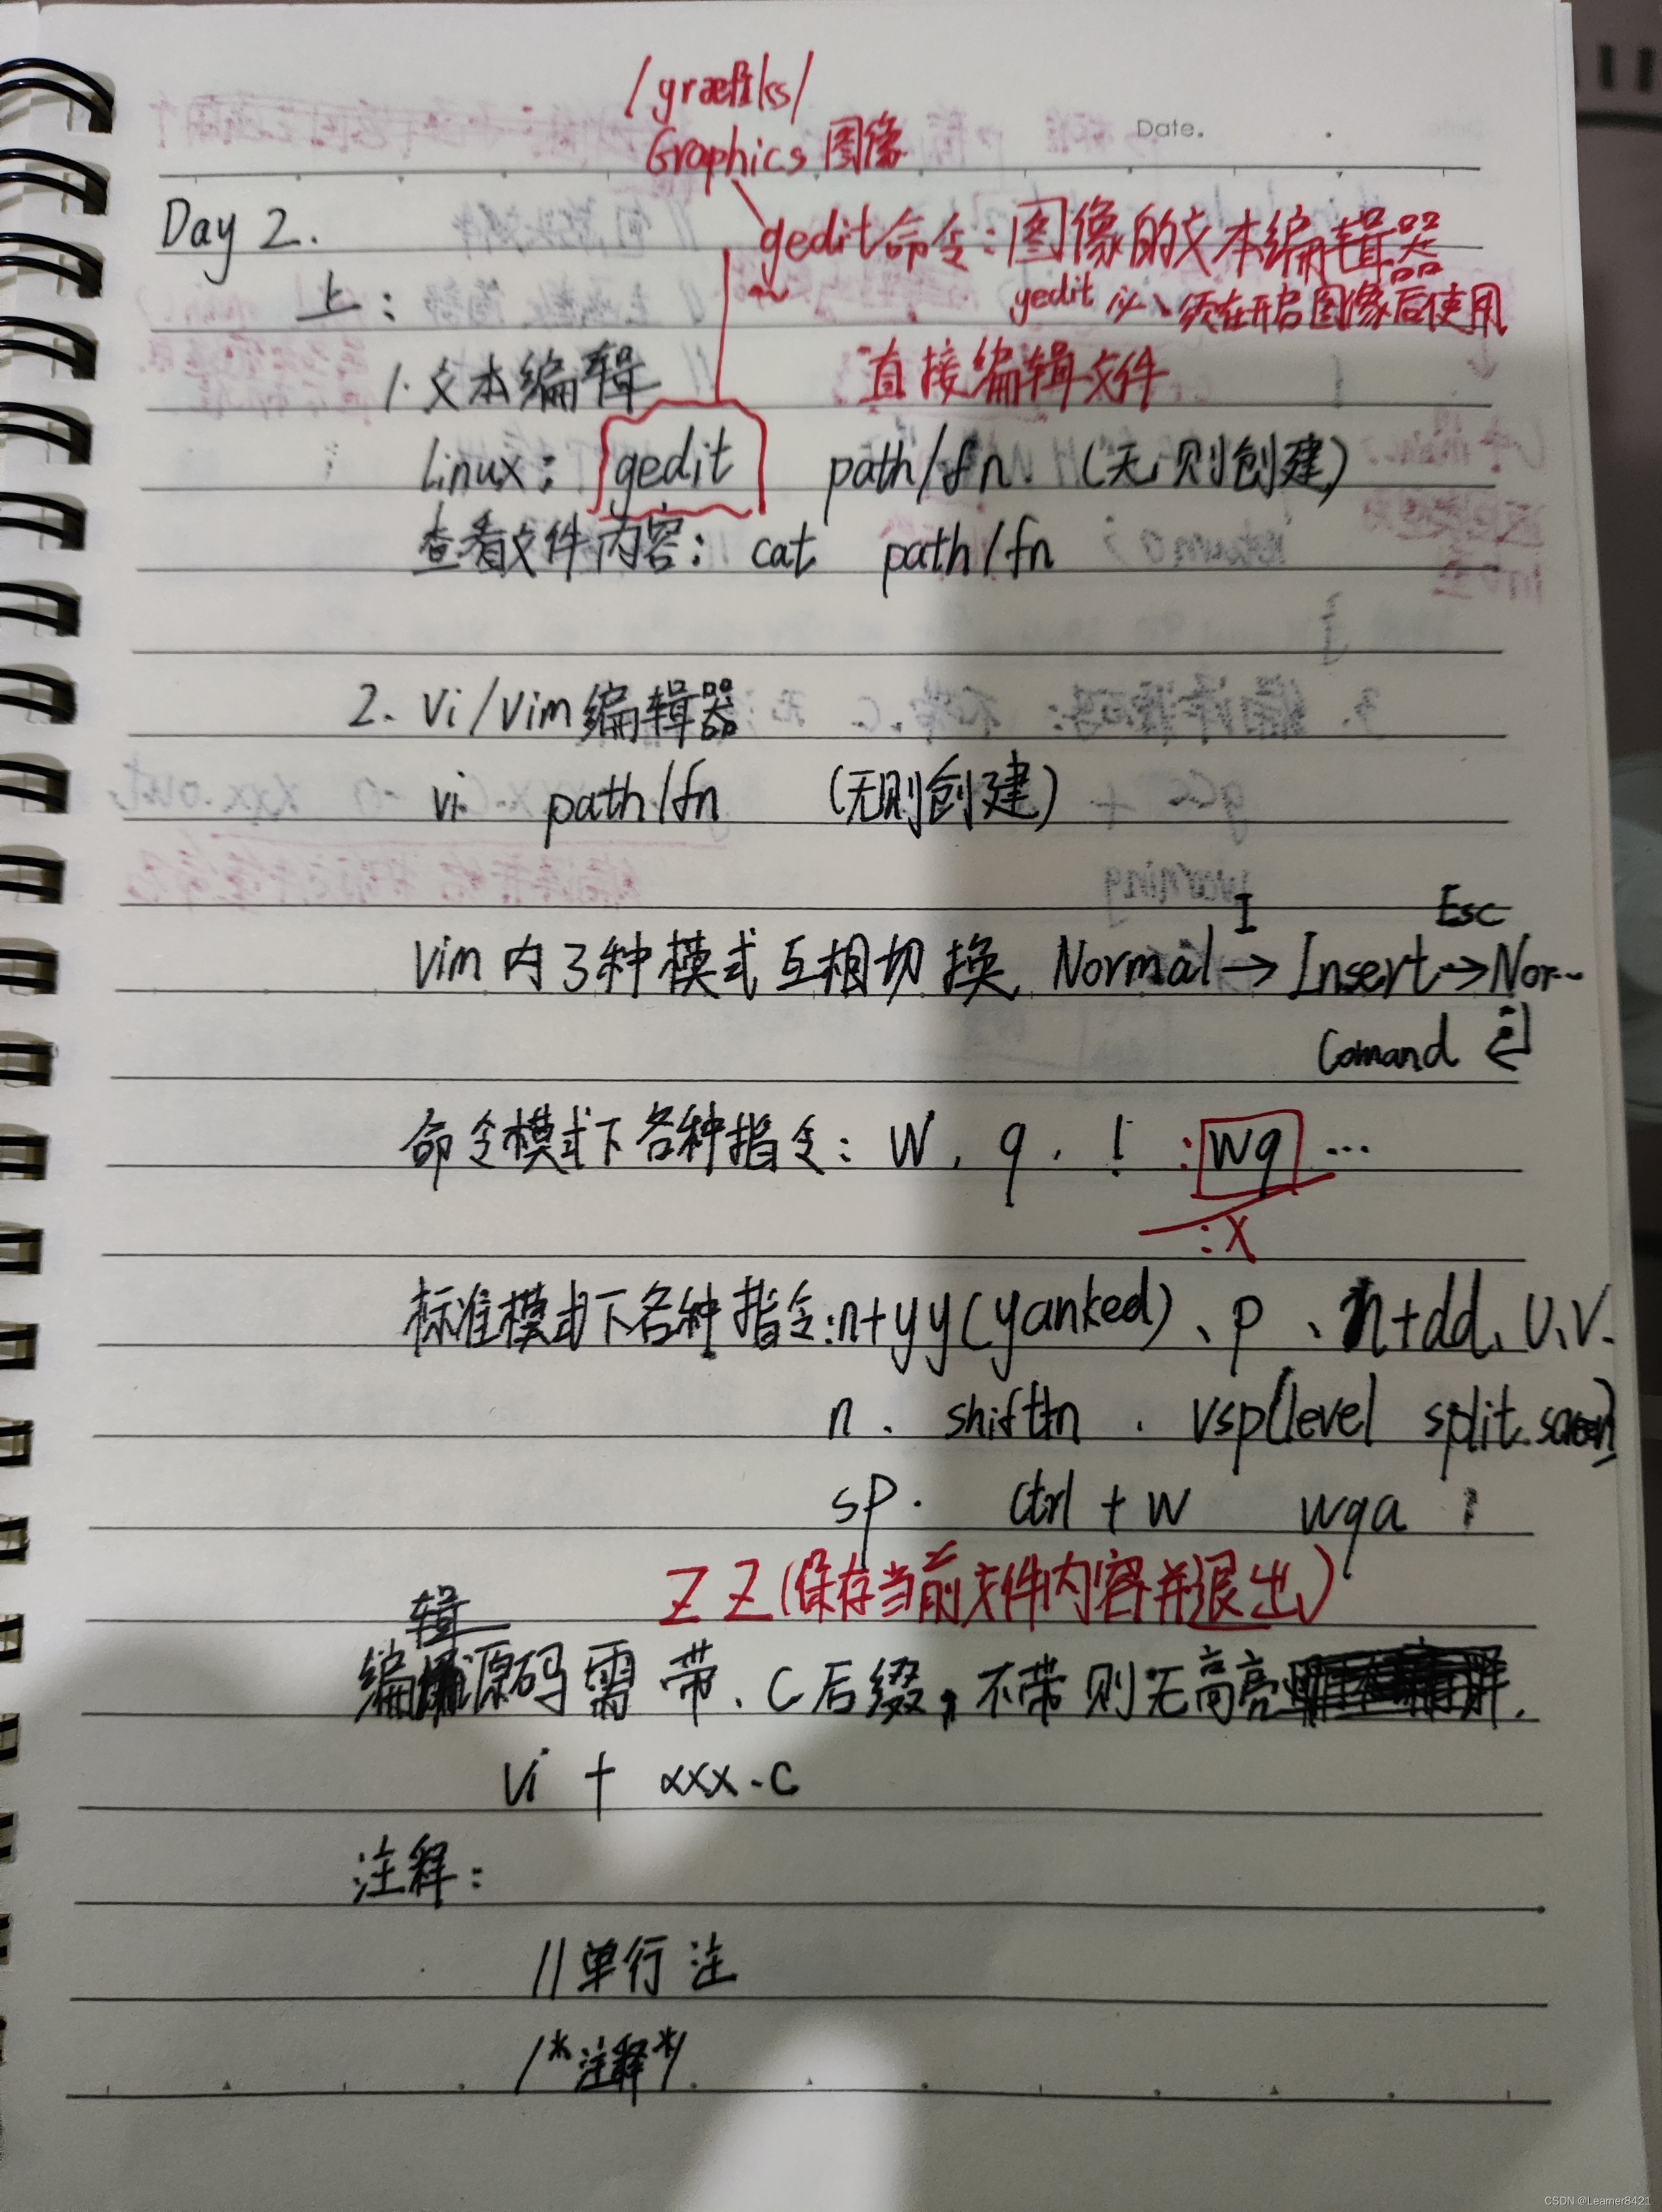 /græfiks/
Graphics 图像
Date.
Day 2.
gedit命令:图像的文本编辑器
上:
gedit 必须在开启图像后使用
1.文本编辑
直接编辑文件
Linux: gedit path/fn. (无则创建)
查看文件内容: cat path/fn
2. Vi/Vim编辑器
vi path/fn (无则创建)
I Esc
Vim内3种模式互相切换 Normal→Insert→Nor..
Comand
命令模式下各种指令: W, q, ! :wq ...
:X
标准模式下各种指令:n+yy(yanked)、p、n+dd、U、V.
n. shift+n . vsp(level split screen)
sp. ctrl + w wqa
ZZ(保存当前文件内容并退出)
辑
编源码需带.C后缀,不带则无高亮.
vi + xxx.c
注释:
//单行注
/*注释*/
CSDN @Learner8421